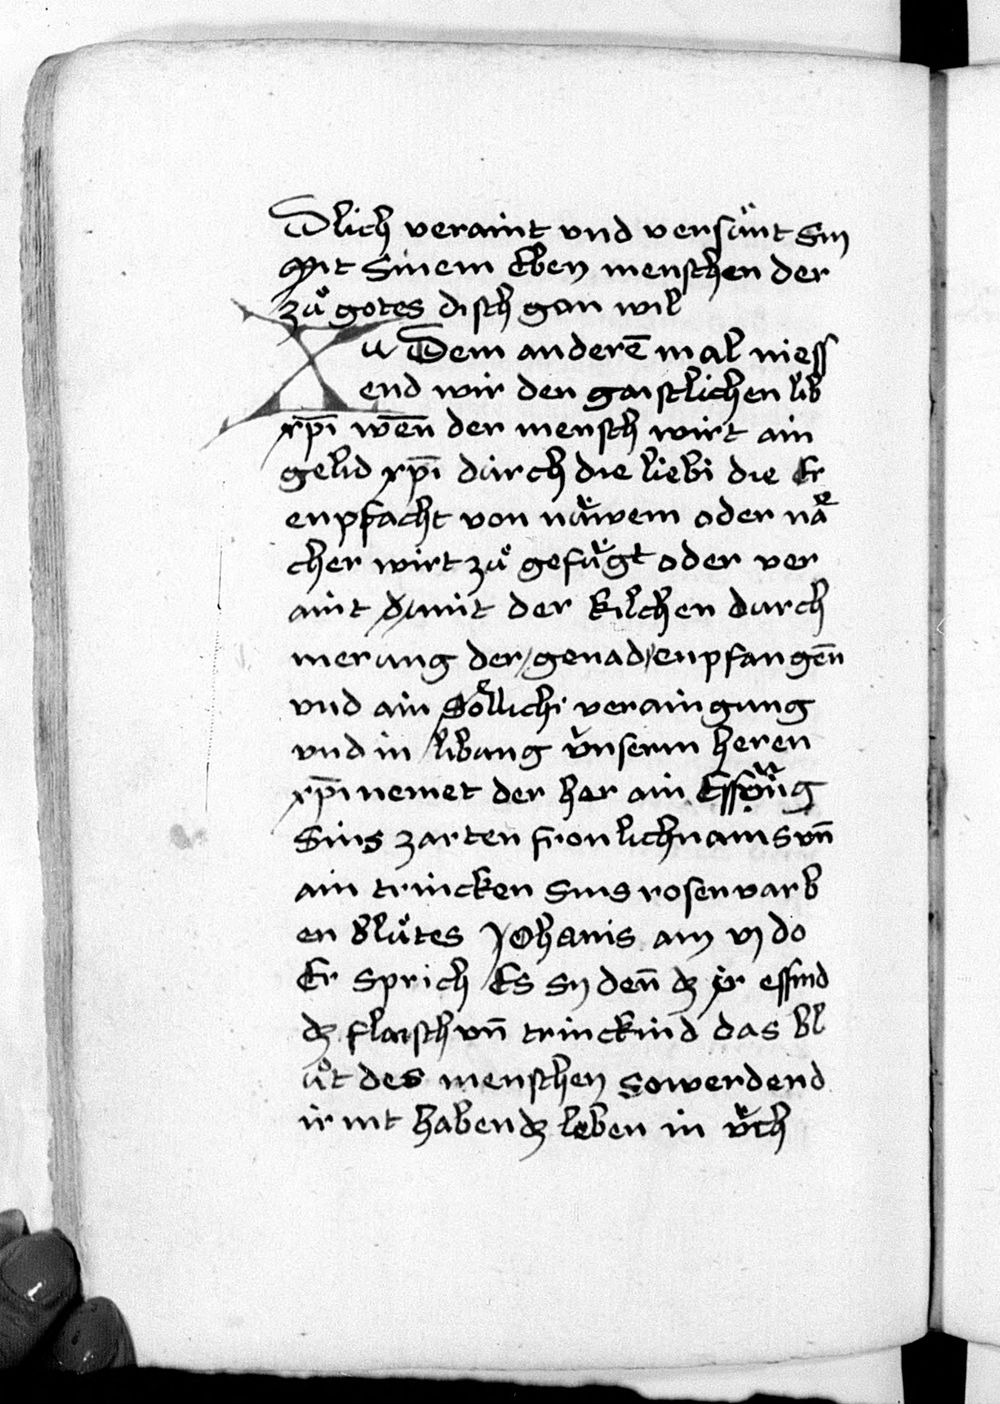 Dlich veraint vnd versünt Sin
Mit Sinem Eben menschen der
zů gotes disch gan wil
Zu Dem anderē mal niess
end wir den gaistlichen lib
xp̄i wēn der mensch wirt ain
gelid xp̄i durch die liebi die Er
enpfacht von nüwem oder nä
cher wirt zů gefügt oder ver
aint damit der kilchen durch
merung der genad enpfangēn
vnd ain Söllichi verainigung
vnd in libung v̈nserm heren
xp̄i nemet der her ain
Sins zarten fronlichnams vn̄
ain trincken Sins rosenvarb
en blůtes Johanis am vj do
Er Sprich Es sy den̄ dz ir essind
dz flaisch vn̄ trinckind das bl
ůt des menschen So werdend
ir nit haben dz leben in v̈ch